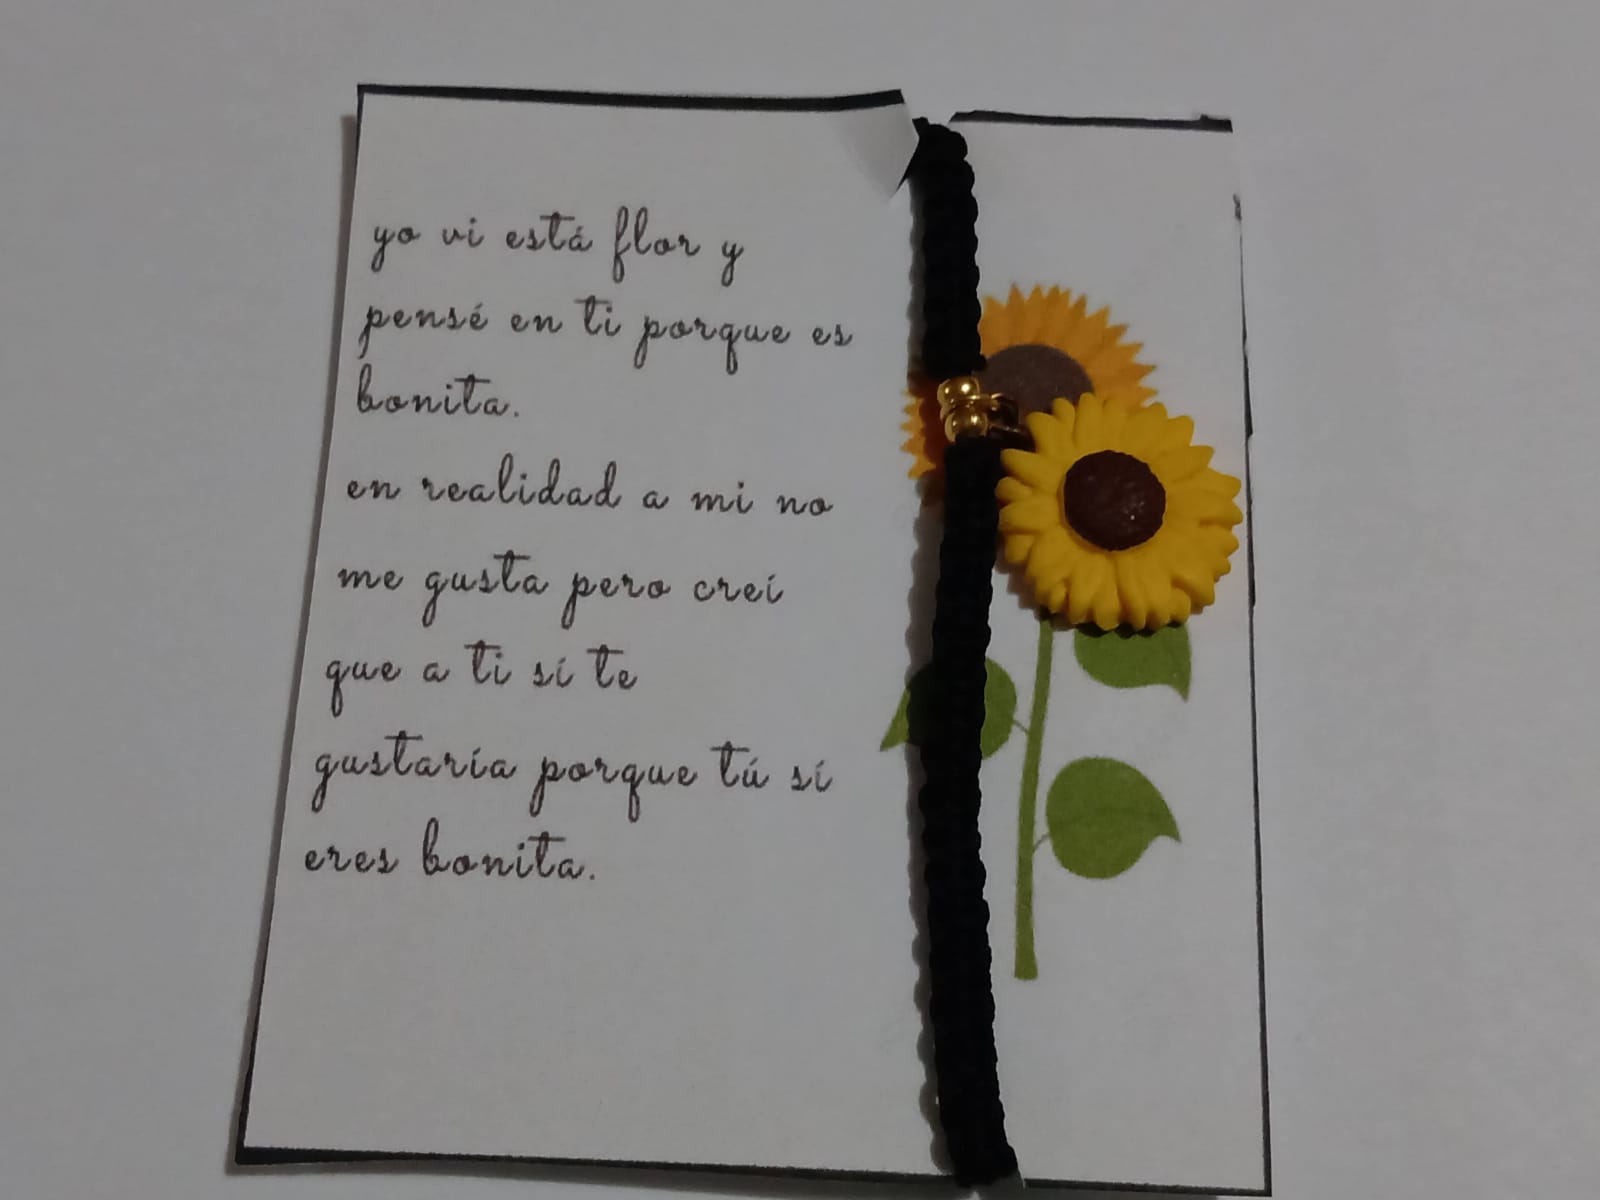 yo vi está flor y
pensé en ti porque es
bonita.
en realidad a mi no
me gusta pero creí
que a ti sí te
gustaría porque tú sí
eres bonita.